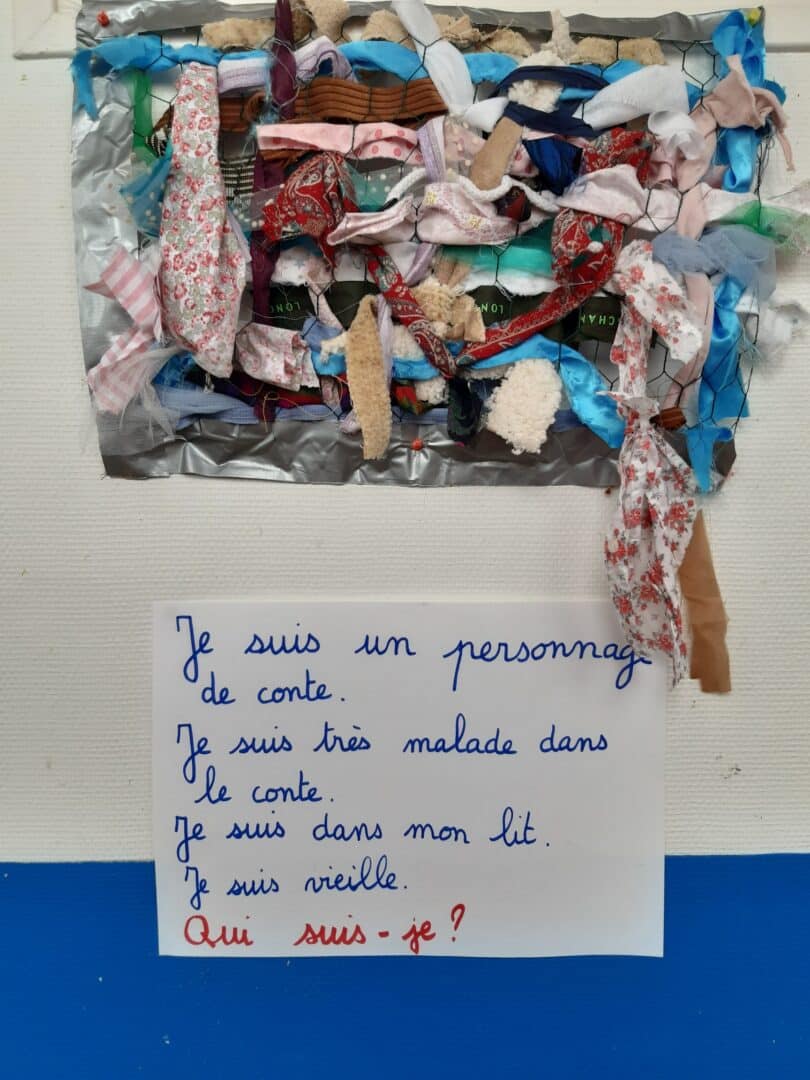 LONG
LON
CHAN
Je suis un personnage
de conte.
Je suis très malade dans
le conte.
Je suis dans mon lit.
Je suis vieille.
Qui suis-je?